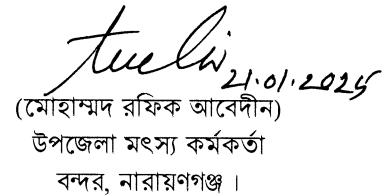 21.01.2025
(মোহাম্মদ রফিক আবেদীন)
উপজেলা মৎস্য কর্মকর্তা
বন্দর, নারায়ণগঞ্জ ।